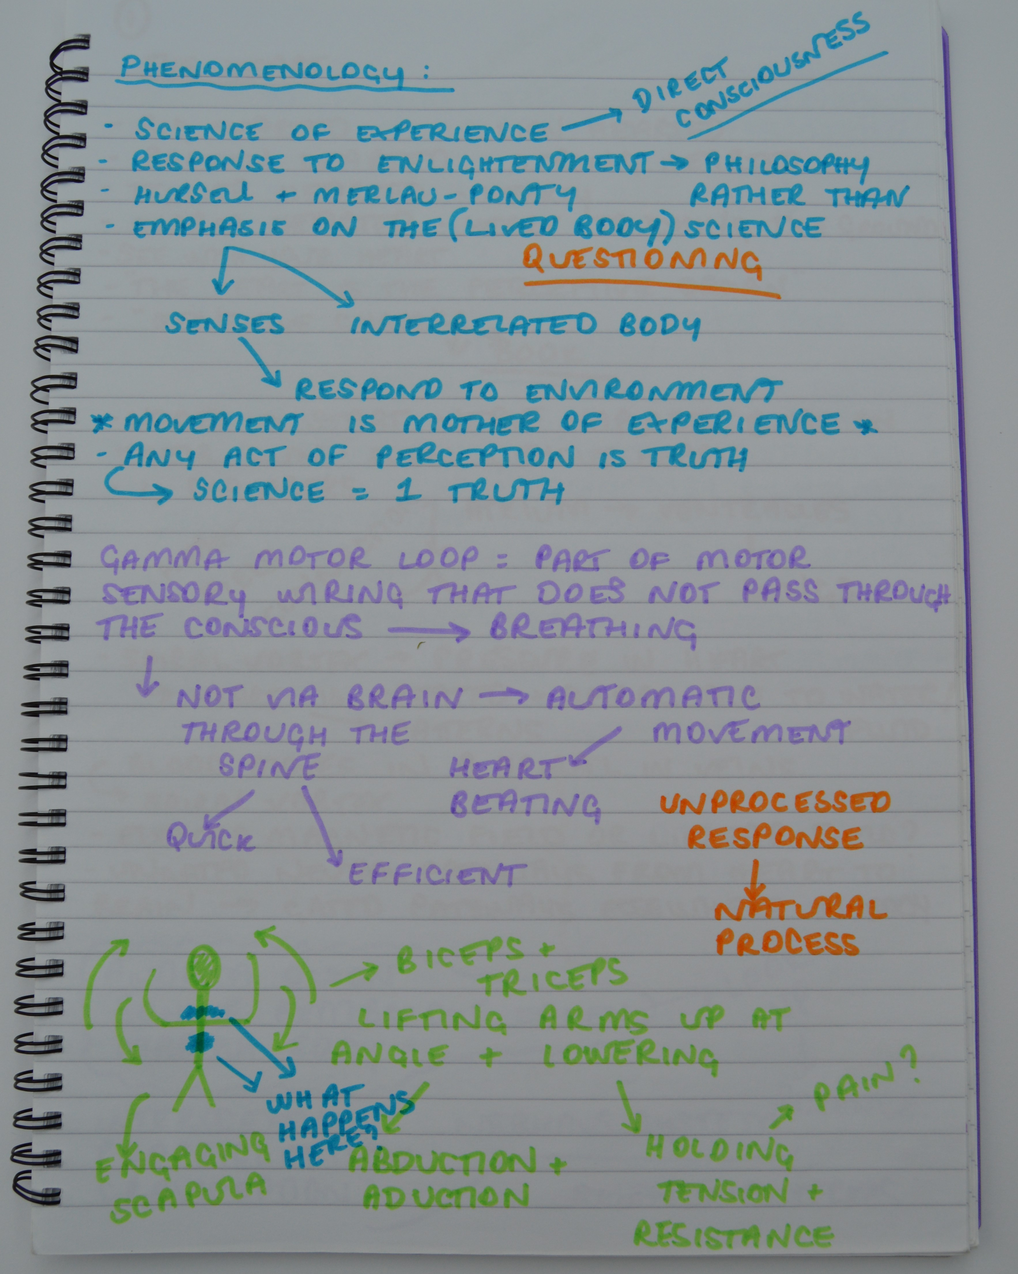 PHENOMENOLOGY:
- SCIENCE OF EXPERIENCE → DIRECT
CONSCIOUSNESS
- RESPONSE TO ENLIGHTENMENT → PHILOSOPHY
- HURSELL + MERLAU-PONTY RATHER THAN
- EMPHASIS ON THE (LIVED BODY) SCIENCE
QUESTIONING
SENSES INTERRELATED BODY
RESPOND TO ENVIRONMENT
* MOVEMENT IS MOTHER OF EXPERIENCE *
- ANY ACT OF PERCEPTION IS TRUTH
→ SCIENCE = 1 TRUTH
GAMMA MOTOR LOOP = PART OF MOTOR
SENSORY WIRING THAT DOES NOT PASS THROUGH
THE CONSCIOUS → BREATHING
NOT VIA BRAIN → AUTOMATIC
THROUGH THE MOVEMENT
SPINE HEART
BEATING
QUICK
EFFICIENT
UNPROCESSED
RESPONSE
NATURAL
PROCESS
→ BICEPS +
TRICEPS
LIFTING ARMS UP AT
ANGLE + LOWERING
WHAT
HAPPENS
HERE?
PAIN?
ENGAGING
SCAPULA
ABDUCTION +
ADUCTION
HOLDING
TENSION +
RESISTANCE